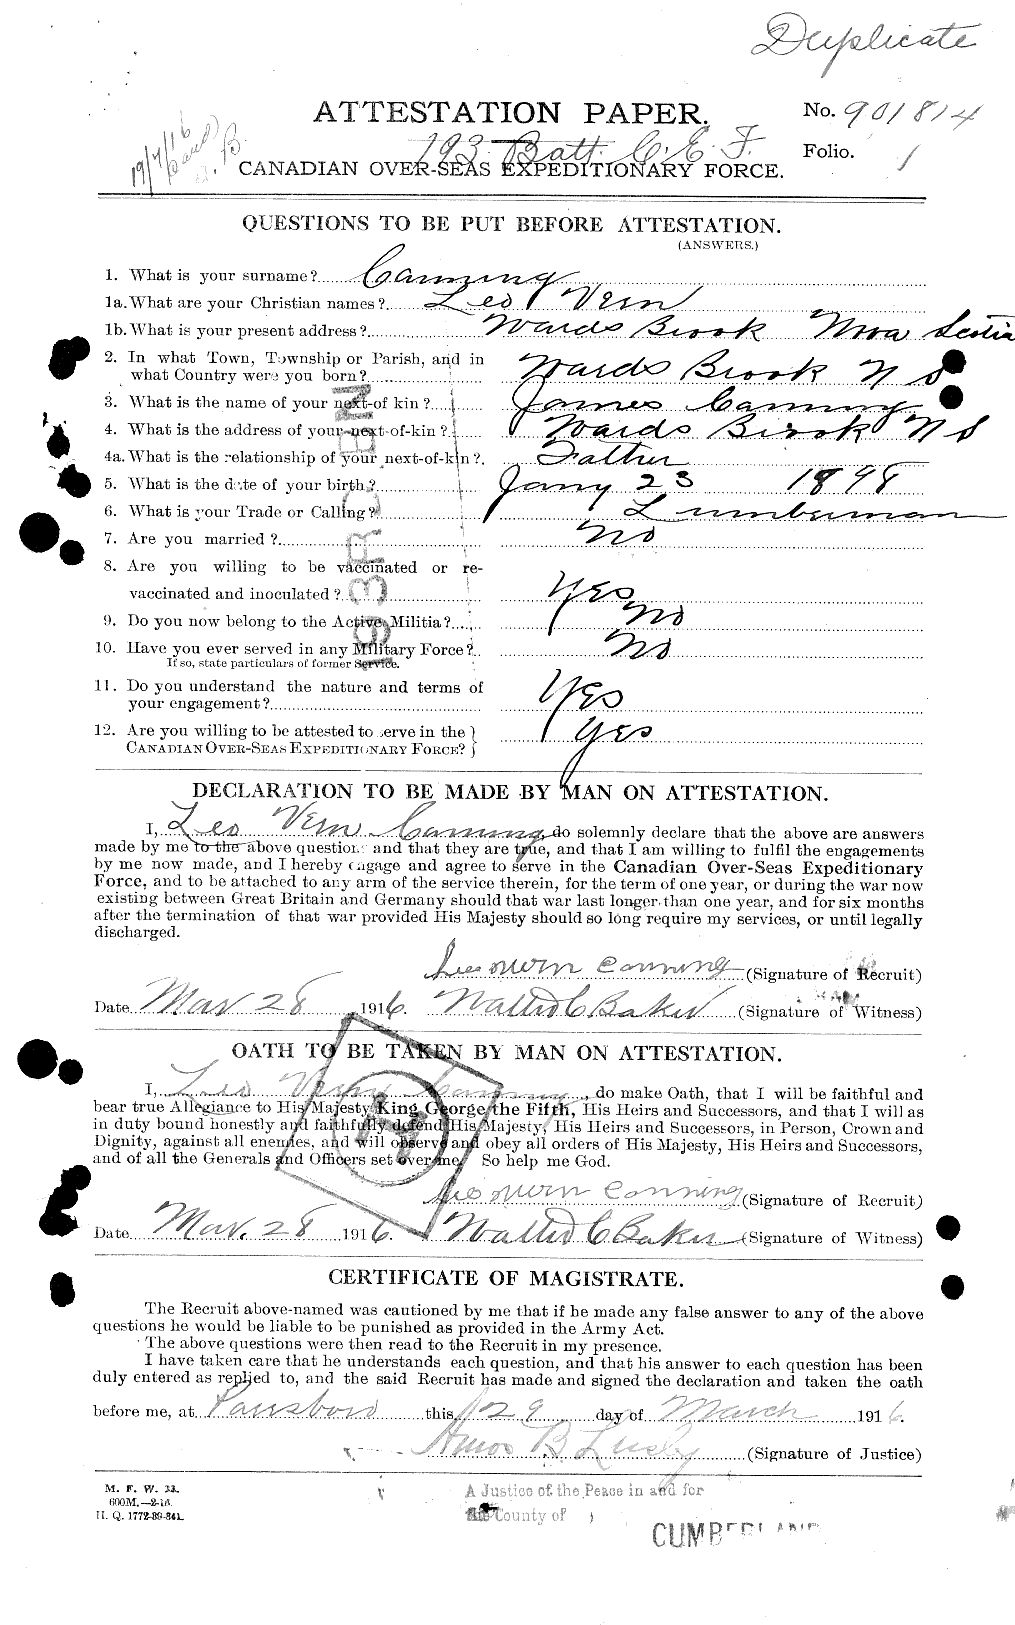 Duplicate
ATTESTATION PAPER.
No. 901814
193 Batt. C. E. F.
Folio. 1
19/7/16
CANADIAN OVER-SEAS EXPEDITIONARY FORCE.
QUESTIONS TO BE PUT BEFORE ATTESTATION.
(ANSWERS.)
1. What is your surname? Canning
1a. What are your Christian names? Leo Vern
1b. What is your present address? Wards Brook Nova Scotia
2. In what Town, Township or Parish, and in
what Country were you born? Wards Brook N S
3. What is the name of your next-of kin? James Canning
4. What is the address of your next-of-kin? Wards Brook N S
4a. What is the relationship of your next-of-kin? Father
5. What is the date of your birth? Jany 23 1898
6. What is your Trade or Calling? Lumberman
7. Are you married? No
8. Are you willing to be vaccinated or re-
vaccinated and inoculated? Yes
9. Do you now belong to the Active Militia? No
10. Have you ever served in any Military Force? No
If so, state particulars of former Service.
11. Do you understand the nature and terms of
your engagement? Yes
12. Are you willing to be attested to serve in the
CANADIAN OVER-SEAS EXPEDITIONARY FORCE? Yes
DECLARATION TO BE MADE BY MAN ON ATTESTATION.
I, Leo Vern Canning, do solemnly declare that the above are answers
made by me to the above questions and that they are true, and that I am willing to fulfil the engagements
by me now made, and I hereby engage and agree to serve in the Canadian Over-Seas Expeditionary
Force, and to be attached to any arm of the service therein, for the term of one year, or during the war now
existing between Great Britain and Germany should that war last longer than one year, and for six months
after the termination of that war provided His Majesty should so long require my services, or until legally
discharged.
Leo Vern Canning (Signature of Recruit)
Date Mar 28 1916. Walter C Baker (Signature of Witness)
OATH TO BE TAKEN BY MAN ON ATTESTATION.
I, Leo Vern Canning, do make Oath, that I will be faithful and
bear true Allegiance to His Majesty King George the Fifth, His Heirs and Successors, and that I will as
in duty bound honestly and faithfully defend His Majesty, His Heirs and Successors, in Person, Crown and
Dignity, against all enemies, and will observe and obey all orders of His Majesty, His Heirs and Successors,
and of all the Generals and Officers set over me. So help me God.
Leo Vern Canning (Signature of Recruit)
Date Mar. 28 1916. Walter C Baker (Signature of Witness)
CERTIFICATE OF MAGISTRATE.
The Recruit above-named was cautioned by me that if he made any false answer to any of the above
questions he would be liable to be punished as provided in the Army Act.
The above questions were then read to the Recruit in my presence.
I have taken care that he understands each question, and that his answer to each question has been
duly entered as replied to, and the said Recruit has made and signed the declaration and taken the oath
before me, at Parrsboro this 29 day of March 1916.
Amos B Lusby (Signature of Justice)
M. F. W. 23.
600M.—2-16.
H. Q. 1772-39-841.
A Justice of the Peace in and for
the County of
CUMBERLAND